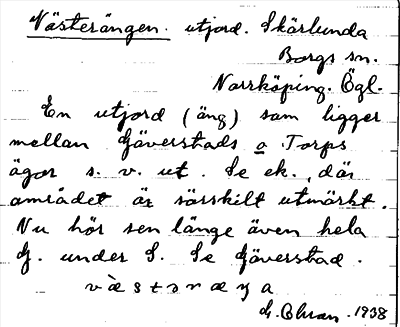 Västerängen. utjord. Skärlunda
Borgs sn.
Norrköping. Ögl.
En utjord (äng) som ligger
mellan Gäverstads o Torps
ägor s. v. ut. Se ek., där
området är särskilt utmärkt.
Nu hör sen länge även hela
G. under S. Se Gäverstad.
1938